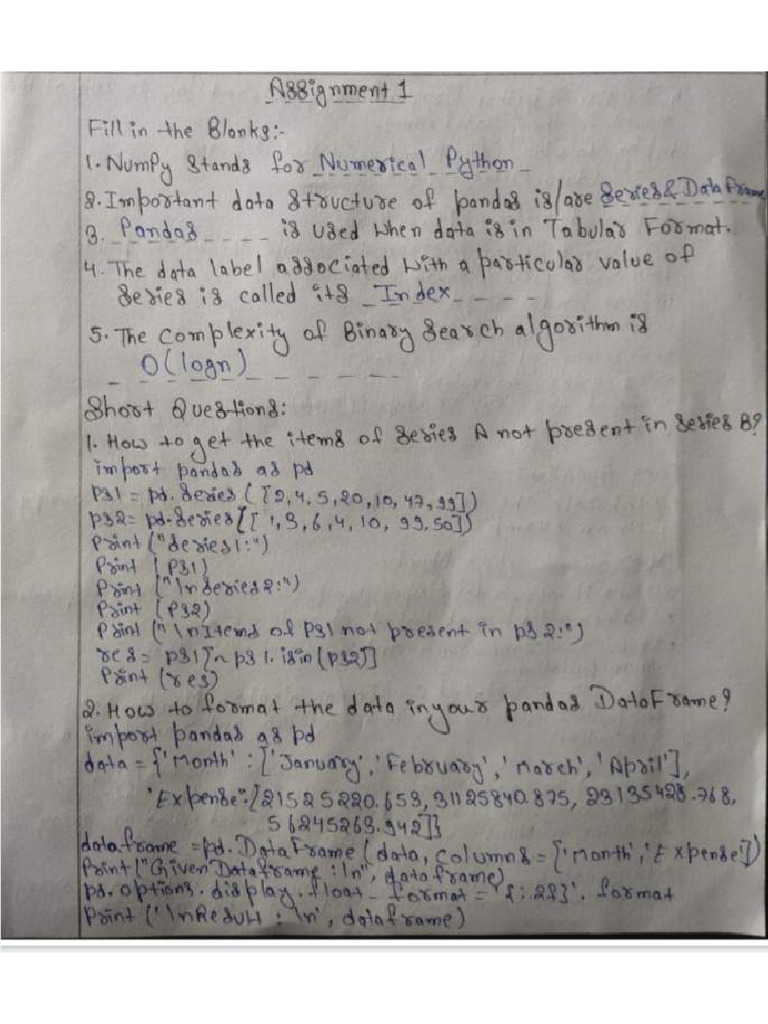 Assignment 1
Fill in the Blanks:-
1. NumPy stands for Numerical Python
2. Important data structure of pandas is/are Series & DataFrame
3. Pandas is used when data is in Tabular Format.
4. The data label associated with a particular value of
Series is called its Index
5. The complexity of Binary Search algorithm is
O(logn)
Short Questions:
1. How to get the items of series A not present in series B?
import pandas as pd
ps1 = pd.Series([2,4,5,20,10,47,99])
ps2 = pd.Series([1,3,6,4,10,99,50])
Print ("Series1:")
Print (ps1)
Print ("\nSeries2:")
Print (ps2)
Print ("\nItems of ps1 not present in ps2:")
res = ps1[~ps1.isin(ps2)]
Print (res)
2. How to format the data in your pandas DataFrame?
import pandas as pd
data = {'Month' : ['January', 'February', 'March', 'April'],
'Expense':[21525220.653, 31125840.875, 23135428.768,
56245263.942]}
dataframe = pd.DataFrame (data, columns = ['Month', 'Expense'])
Print("Given Dataframe :\n", dataframe)
pd.options.display.float_format = '{:.2f}'.format
Print('\nResult : \n', dataframe)